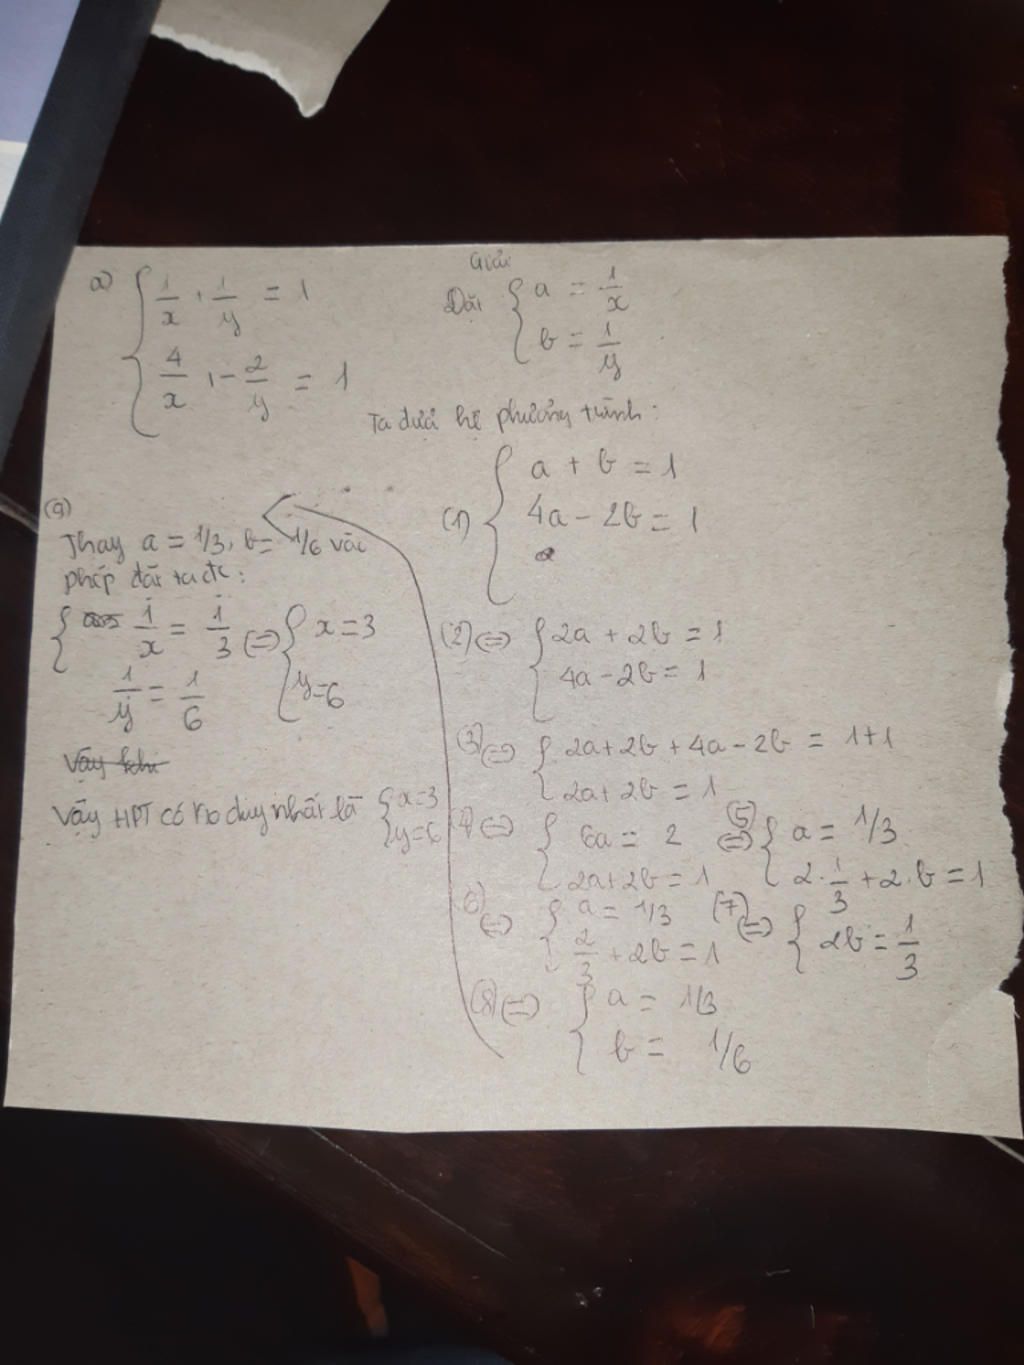 a) { 1/x + 1/y = 1
4/x + -2/y = 1
Giải
Đặt { a = 1/x
b = 1/y
Ta được hệ phương trình:
(1) { a + b = 1
4a - 2b = 1
(2) <=> { 2a + 2b = 1
4a - 2b = 1
(3) <=> { 2a + 2b + 4a - 2b = 1+1
2a + 2b = 1
(4) <=> { 6a = 2
2a + 2b = 1
(5) <=> { a = 1/3
2 . 1/3 + 2 . b = 1
(6) <=> { a = 1/3
2/3 + 2b = 1
(7) <=> { 2b = 1/3
(8) <=> { a = 1/3
b = 1/6
(9)
Thay a = 1/3, b = 1/6 vào
phép đặt ta đc:
{ 1/x = 1/3
1/y = 1/6
<=> { x = 3
y = 6
Vậy khi
Vậy HPT có no duy nhất là { x = 3
y = 6